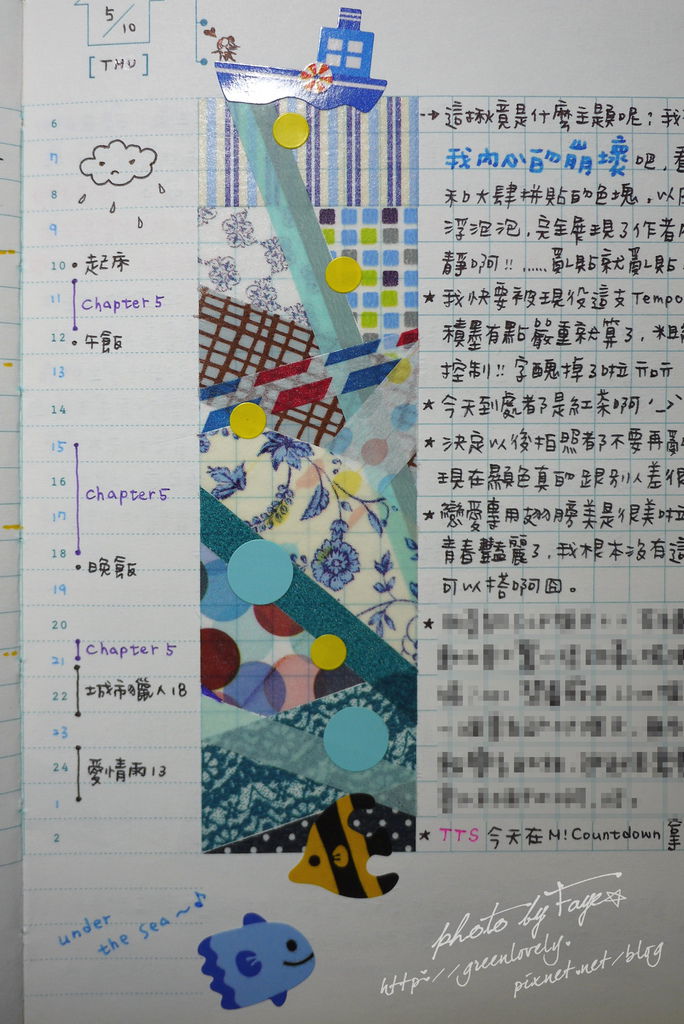 5/10
[THU]
6
7
8
9
10 起床
11
Chapter 5
12 午飯
13
14
15
16
Chapter 5
17
18 晚飯
19
20
Chapter 5
21
22 城市獵人 18
23
24 愛情雨 13
1
2
→ 這揪竟是什麼主題呢?我
我內心的崩壞吧,看
和大肆拼貼的色塊,以
浮泡泡,完全展現了作者
靜啊!!......亂貼就亂貼
★ 我快要被現役這支Tempo
積墨有點嚴重就算了,粗
控制!!字醜掉了啦
★ 今天到處都是紅茶啊'_>`
★ 決定以後拍照都不要再亂
現在顯色真的跟別人差很
★ 戀愛專用翅膀美是很美啦
青春豔麗了,我根本沒有這
可以搭啊囧。
★
★ TTS 今天在M!Countdown 拿
under
the sea~♪
photo by Faye☆
http://greenlovely.
pixnet.net/blog